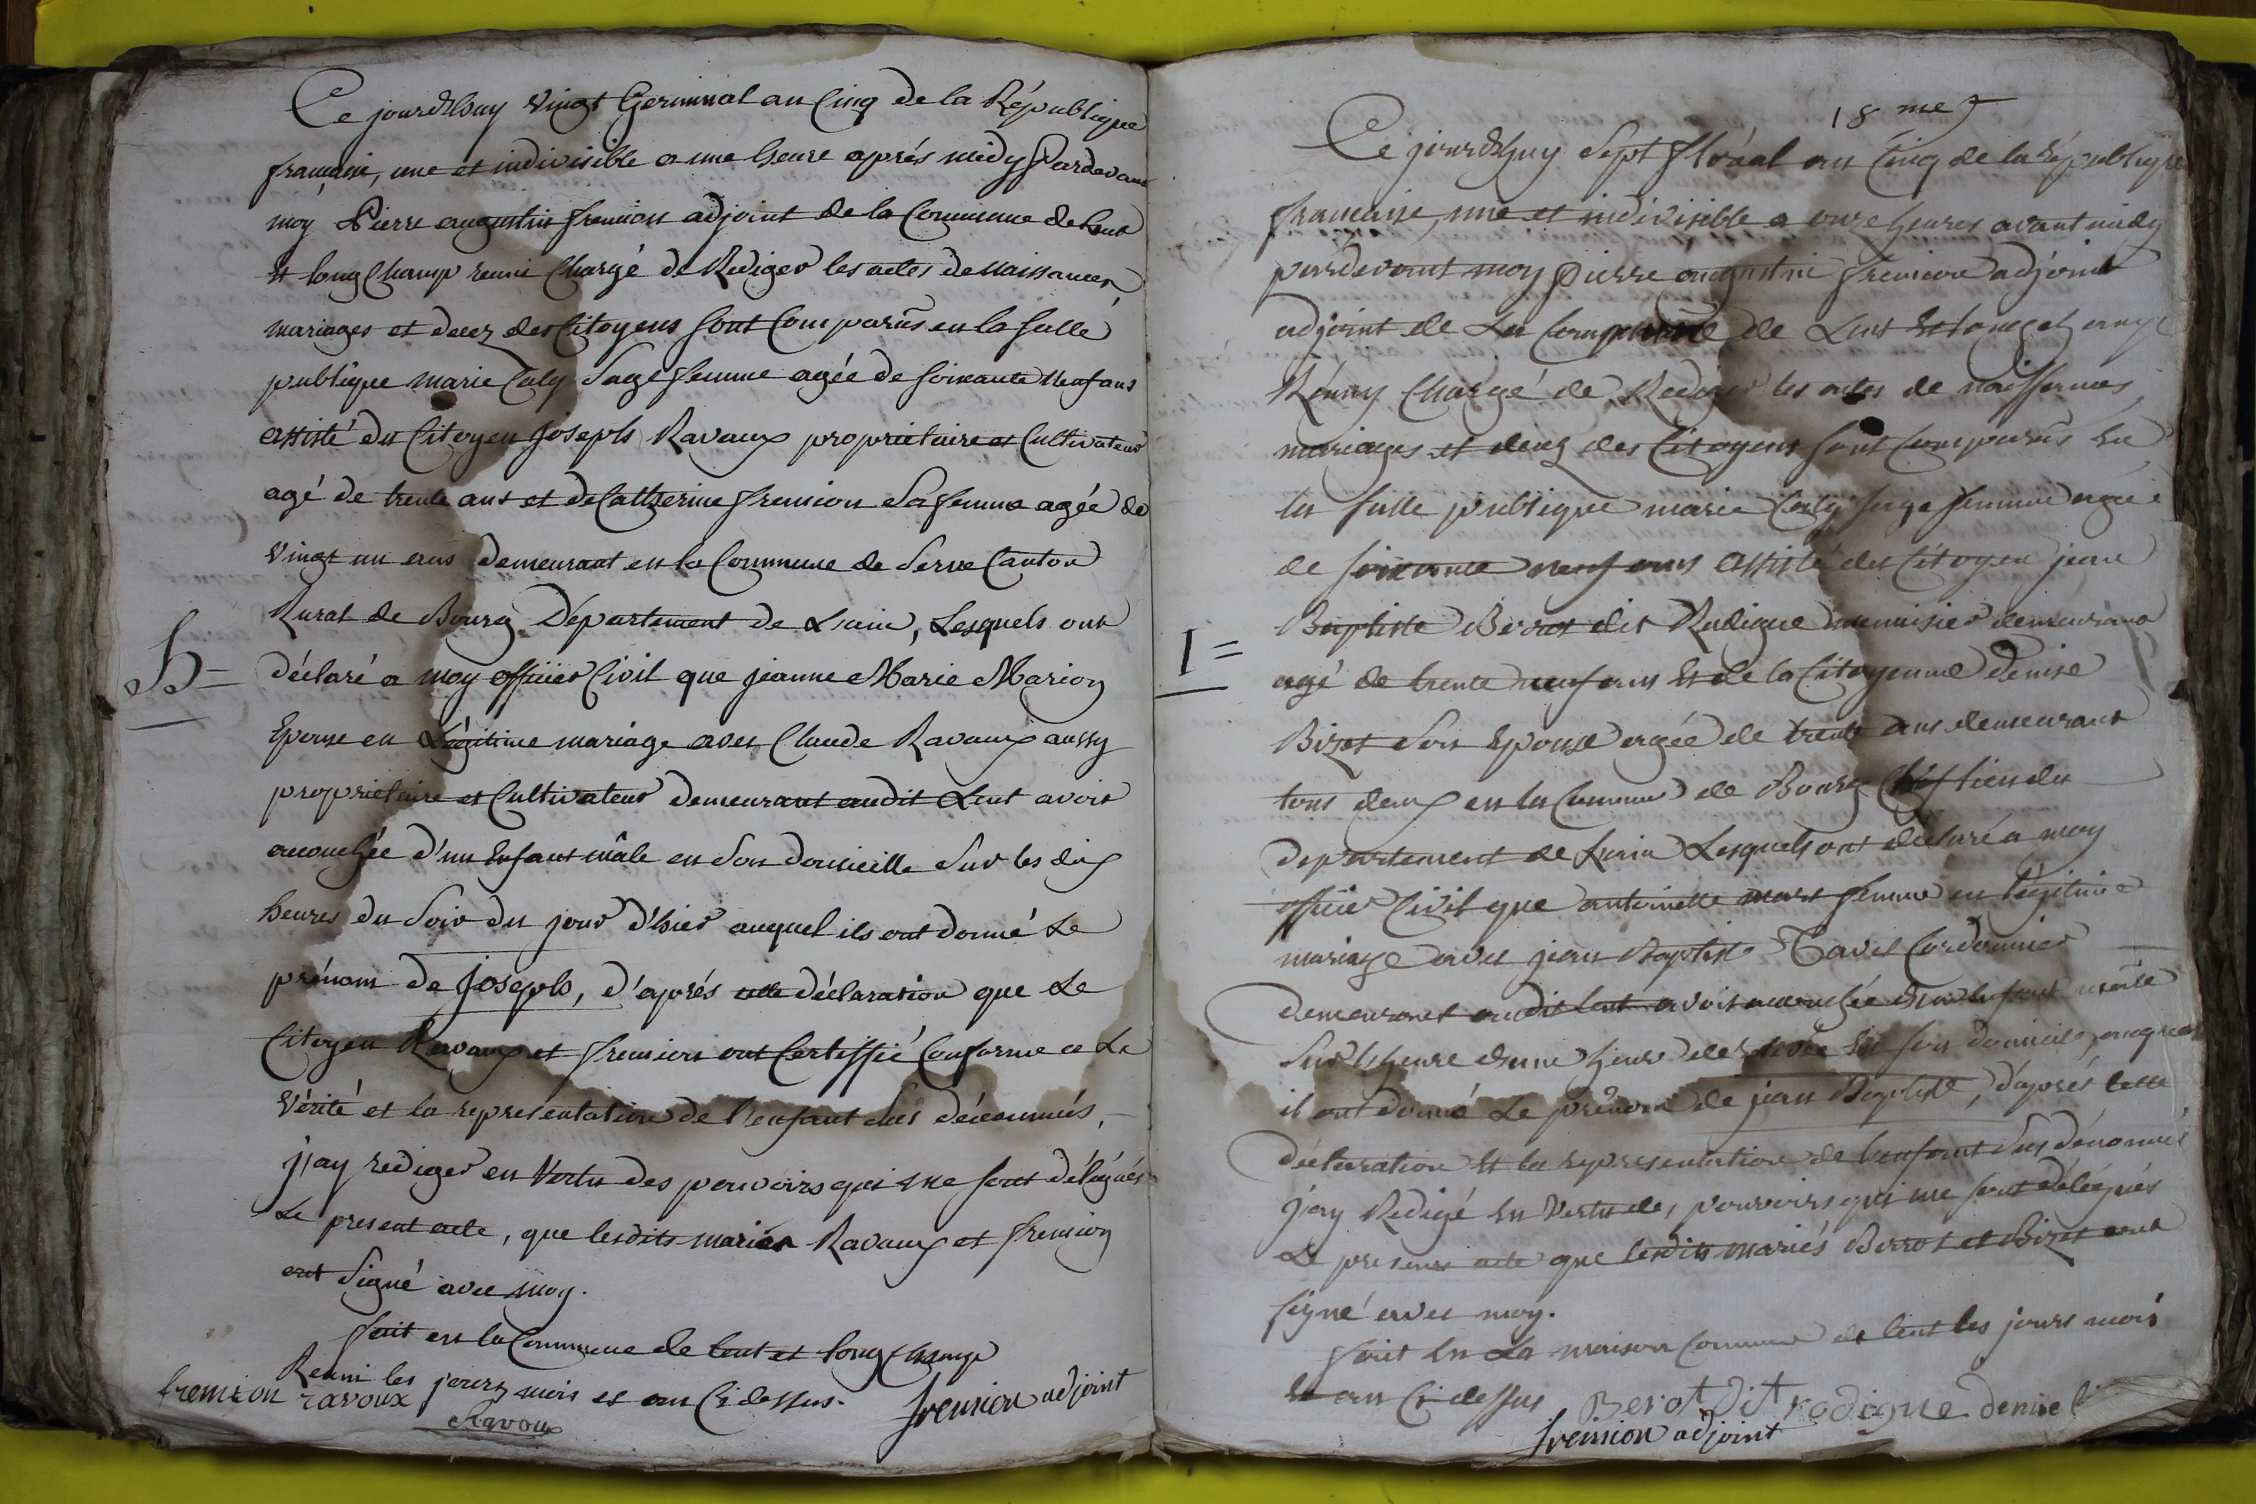 Ce jourd'huy vingt Germinal an Cinq de la République
française, une et indivisible a une heure aprés midy Pardevant
moy Pierre augustin fremion adjoint de la Commune de Lent
et long Champ reuni Chargé de Rediger les actes de Naissances
mariages et decez des Citoyens sont Comparûs en la salle
publique marie Caly Sage femme agée de soixante Neuf ans
assisté du Citoyen Joseph Ravaux proprietaire et Cultivateur
agé de trente ans et de Catherine fremion Sa femme agée de
Vingt un ans demeurant en la Commune de Serve Canton
Rural de Bourg Département de Lain, Lesquels ont
déclaré a moy officier Civil que jeanne Marie Marion
H= Epouse en Légitime mariage avec Claude Ravaux aussy
proprietaire et Cultivateur demeurant audit Lent avoir
accouchée d'un Enfant mâle en Son domicille Sur les dix
heures du Soir du jour d'hier auquel ils ont donné Le
prénom de Joseph, d'aprés cette déclaration que Le
Citoyen Ravaux et fremion ont Certiffié Conforme a La
Vérité et la representation de l'enfant Sus dénommés,
j'ay rediger en Vertu des pouvoirs qui me sont délégués
Le present acte, que lesdits mariés Ravaux et fremion
ont Signé avec moy.
fait en la Commune de Lent et long champ
Reuni les jours mois et an Ci dessus.
fremion ravoux
Ravoux
fremion adjoint
18me
Ce jourd'huy Sept floréal an Cinq de la République
francaise, une et indivisible a onze heures avant midy
pardevant moy pierre augustin fremion adjoint
adjoint de La Commune de Lent Et longchamp
Réuny Chargé de Rediger les actes de naissances,
mariages et decez des Citoyens sont Comparûs En
la salle publique marie Caly sage femme agée
de soixante neuf ans assisté du Citoyen jean
Baptiste Berrot dit Rodigue menuisier demeurant
I= agé de trente neuf ans Et de la Citoyenne Denise
Bizet Son Epouse agée de trente ans demeurant
tous deux en la Commune de Bourg Chef lieu du
departement de Lain Lesquels ont déclaré a moy
officier Civil que antoinette mort femme en légitime
mariage avec jean Baptiste Tavel Cordonnier
demeurant audit Lent avoir accouchée d'un Enfant mâle
Sur l'heure d'une heure de En son domicile, auquel
il ont donné Le prénom de jean Baptiste, d'aprés cette
déclaration Et la representation de lenfant Sus dénommé
j'ay Redigé En Vertu des pouvoirs qui me sont délégués
Le present acte que lesdits mariés Berrot et Bizet ont
signé avec moy.
fait En La maison Commune de Lent les jours mois
Et an Ci dessus
Berot dit rodigue denise
fremion adjoint